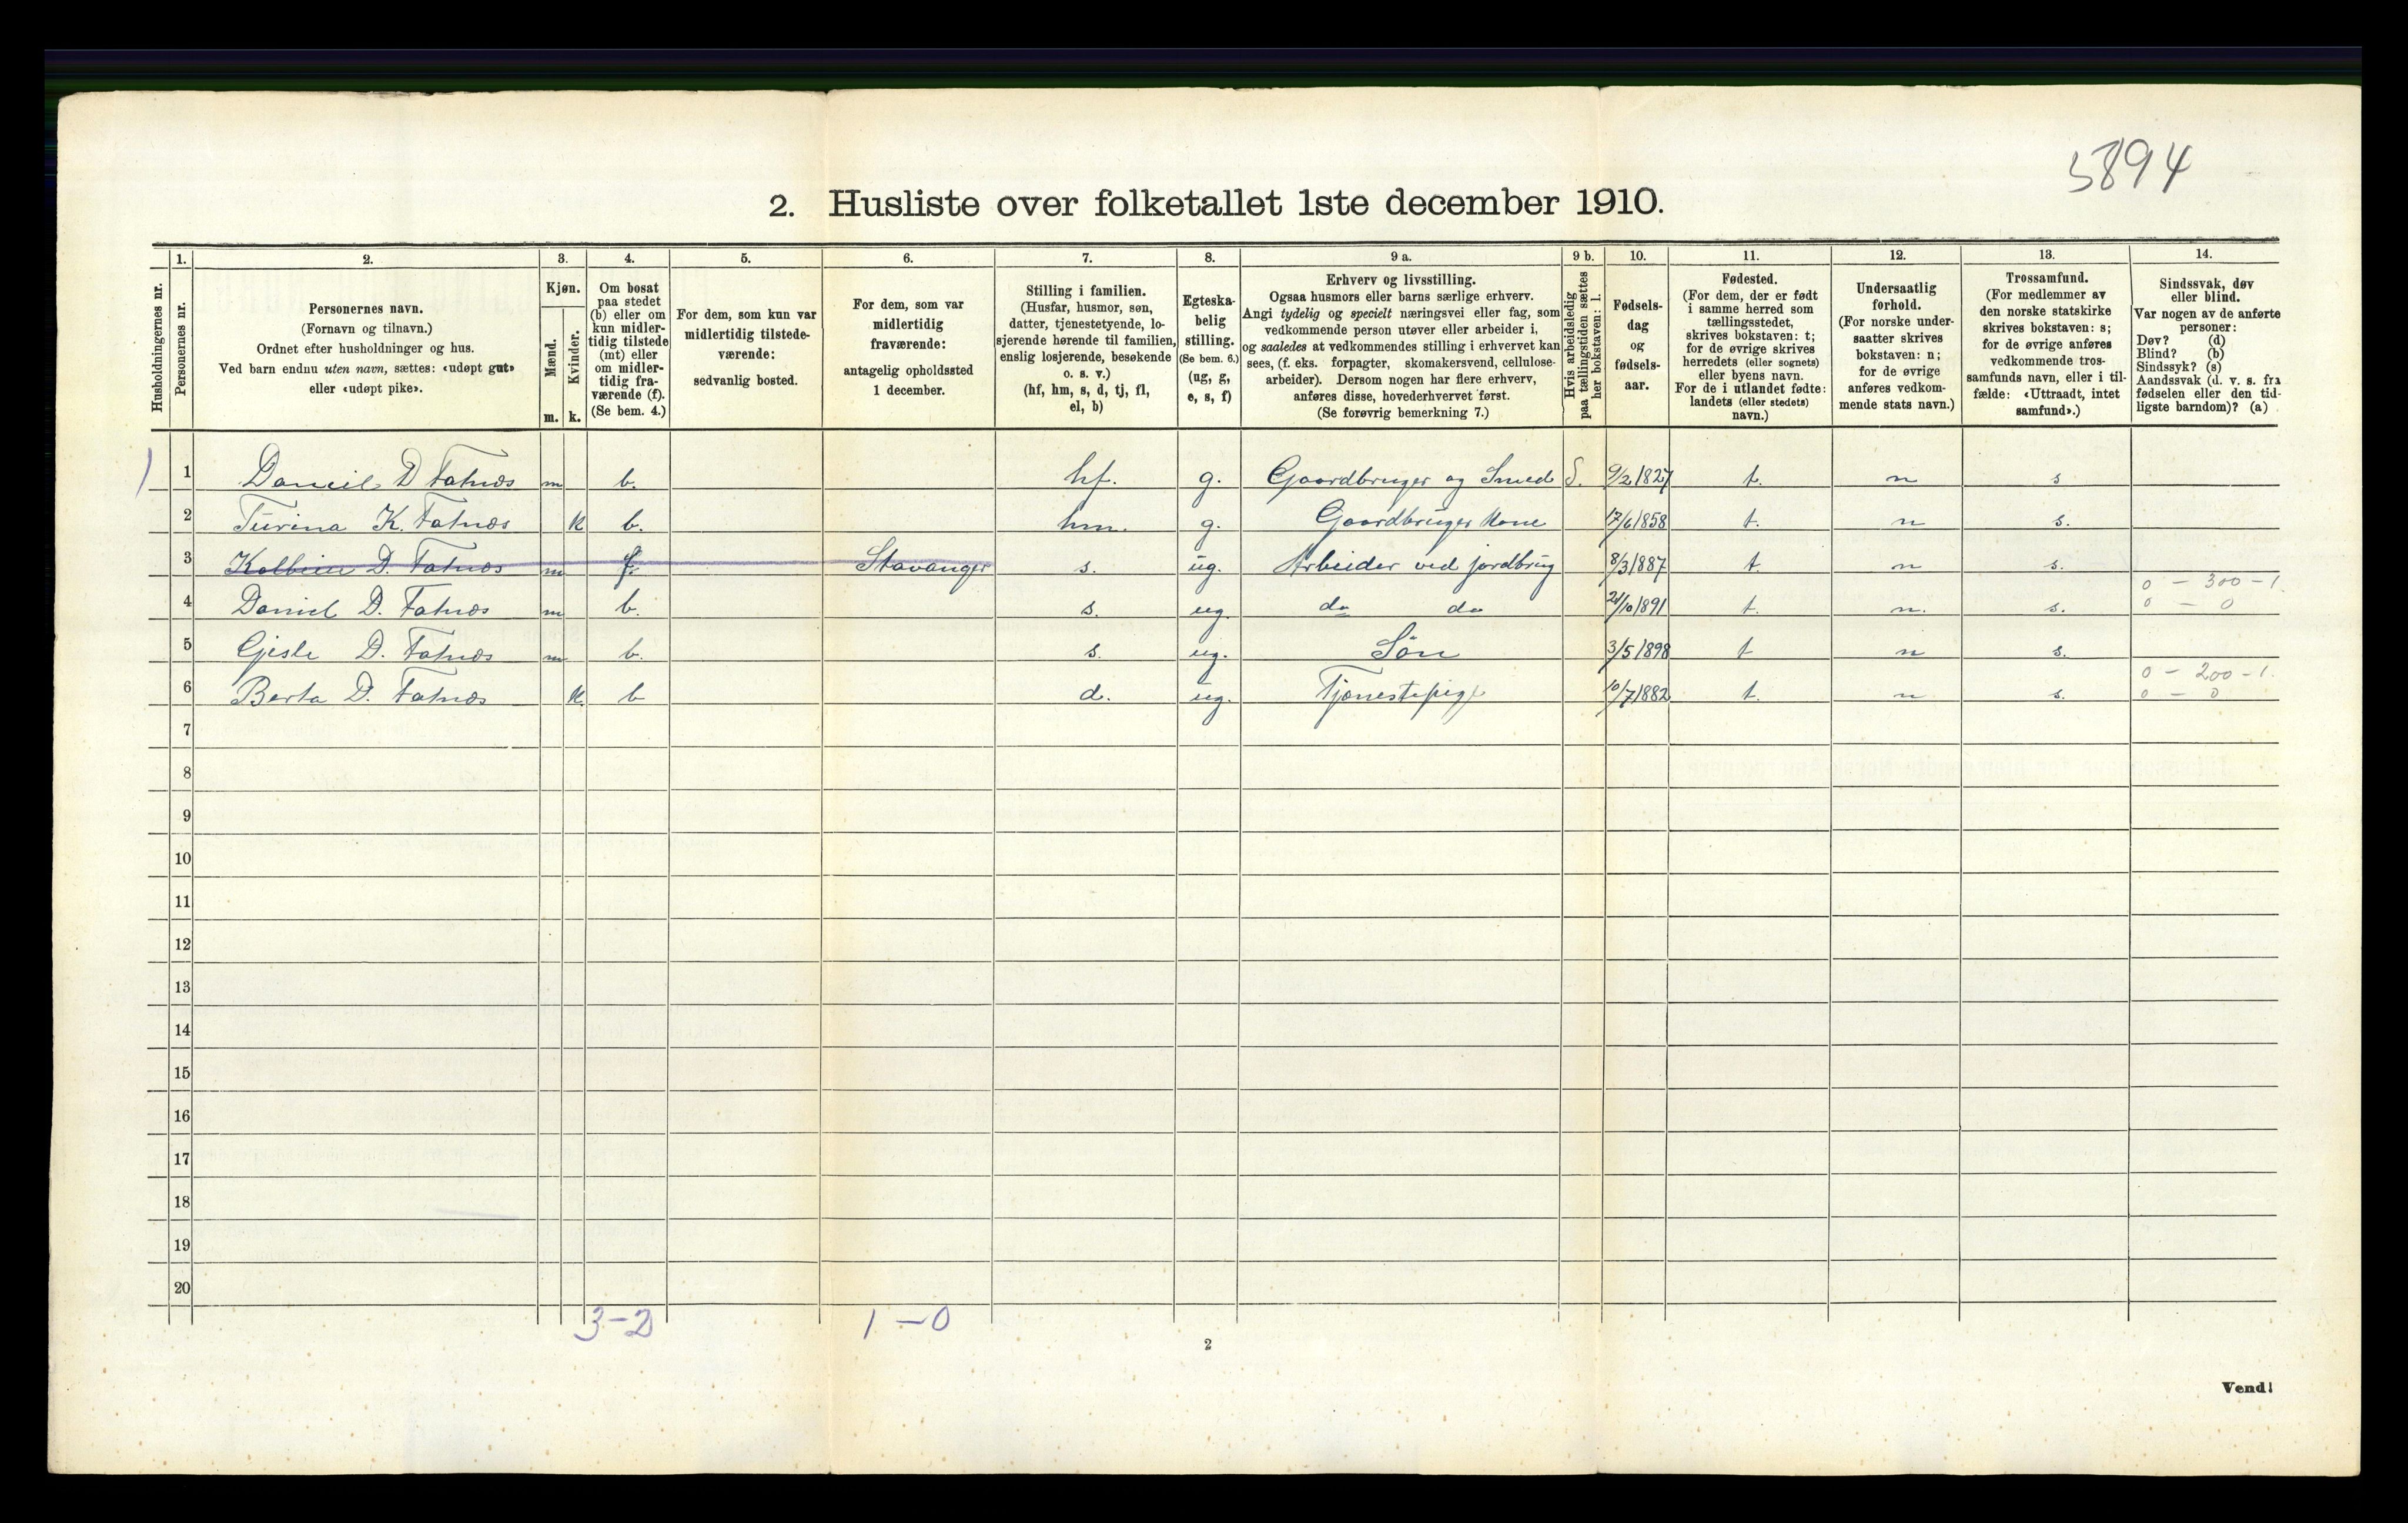 5894
2. Husliste over folketallet 1ste december 1910.
Husholdningernes nr.
1.
Personernes nr.
2.
Personernes navn.
(Fornavn og tilnavn.)
Ordnet efter husholdninger og hus.
Ved barn endnu uten navn, sættes: «udøpt gut»
eller «udøpt pike».
3.
Kjøn.
Mænd.
Kvinder.
m.
k.
4.
Om bosat
paa stedet
(b) eller om
kun midler-
tidig tilstede
(mt) eller
om midler-
tidig fra-
værende (f).
(Se bem. 4.)
5.
For dem, som kun var
midlertidig tilstede-
værende:
sedvanlig bosted.
6.
For dem, som var
midlertidig
fraværende:
antagelig opholdssted
1 december.
7.
Stilling i familien.
(Husfar, husmor, søn,
datter, tjenestetyende, lo-
sjerende hørende til familien,
enslig losjerende, besøkende
o. s. v.)
(hf, hm, s, d, tj, fl,
el, b)
8.
Egteska-
belig
stilling.
(Se bem. 6.)
(ug, g,
e, s, f)
9 a.
Erhverv og livsstilling.
Ogsaa husmors eller barns særlige erhverv.
Angi tydelig og specielt næringsvei eller fag, som
vedkommende person utøver eller arbeider i,
og saaledes at vedkommendes stilling i erhvervet kan
sees, (f. eks. forpagter, skomakersvend, cellulose-
arbeider). Dersom nogen har flere erhverv,
anføres disse, hovederhvervet først.
(Se forøvrig bemerkning 7.)
9 b.
Hvis arbeidsledig
paa tællingstiden sættes
her bokstaven: l.
10.
Fødsels-
dag
og
fødsels-
aar.
11.
Fødested.
(For dem, der er født
i samme herred som
tællingsstedet,
skrives bokstaven: t;
for de øvrige skrives
herredets (eller sognets)
eller byens navn.
For de i utlandet fødte:
landets (eller stedets)
navn.)
12.
Undersaatlig
forhold.
(For norske under-
saatter skrives
bokstaven: n;
for de øvrige
anføres vedkom-
mende stats navn.)
13.
Trossamfund.
(For medlemmer av
den norske statskirke
skrives bokstaven: s;
for de øvrige anføres
vedkommende tros-
samfunds navn, eller i til-
fælde: «Uttraadt, intet
samfund».)
14.
Sindssvak, døv
eller blind.
Var nogen av de anførte
personer:
Døv? (d)
Blind? (b)
Sindssyk? (s)
Aandssvak (d. v. s. fra
fødselen eller den tid-
ligste barndom)? (a)
1 Daniel D Fatnæs m b. hf. g. Gaardbruger og Smed S. 9/2 1827 t. n s
2 Turina K. Fatnæs k b. hm. g. Gaardbruger Kone 17/6 1858 t. n s.
3 Kolbein D. Fatnæs m f. Stavanger s. ug. Arbeider ved jordbrug 8/3 1887 t. n s.
0 — 300 — 1.
4 Daniel D. Fatnæs m b. s. ug. do do 21/10 1891 t. n. s. 0 — 0
5 Gjesle D. Fatnæs m b. s. ug. Søn 3/5 1898 t n s.
0 — 200 — 1.
6 Berta D. Fatnæs k. b d. ug. Tjenestepige 10/7 1882 t. n s. 0 — 0
7
8
9
10
11
12
13
14
15
16
17
18
19
20
3-2 1-0
2
Vend!